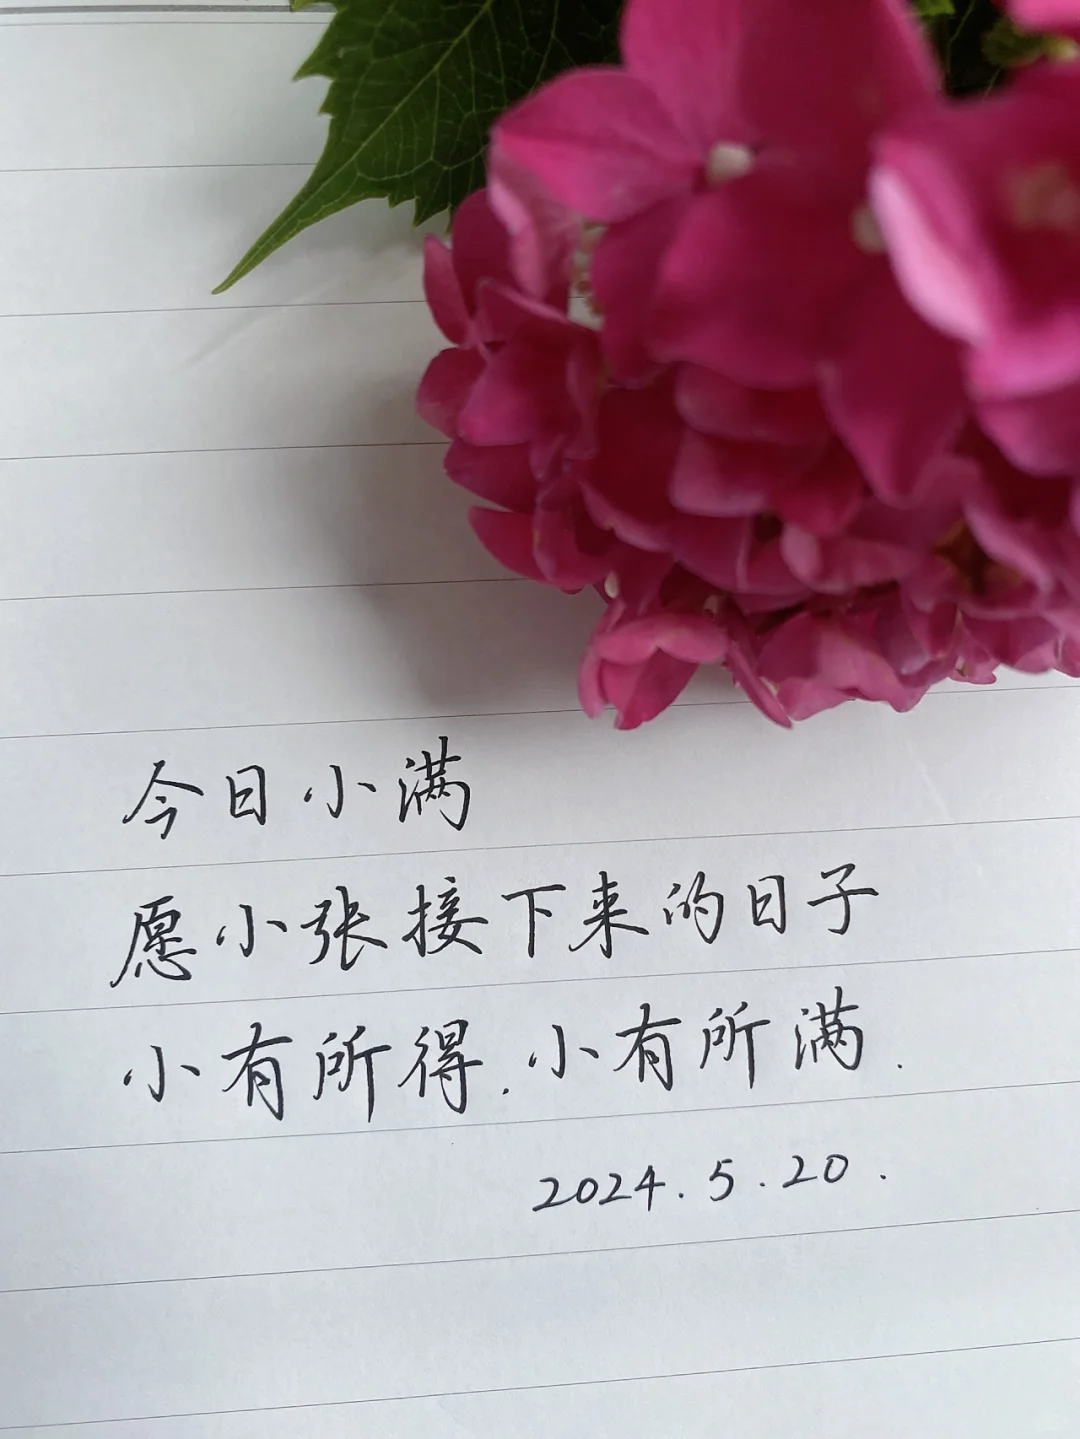 今日小满
愿小张接下来的日子
小有所得.小有所满.
2024.5.20.